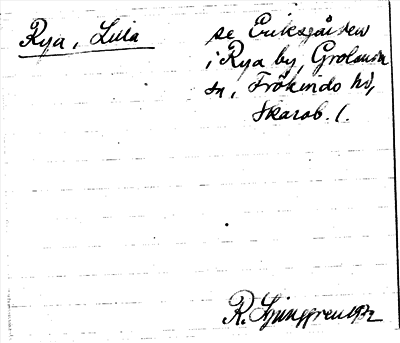 Rya, Lilla
se Eriksgården
i Rya by, Grolanda
sn, Frökinds hd,
Skarab. l.
R. Ljunggren 1932